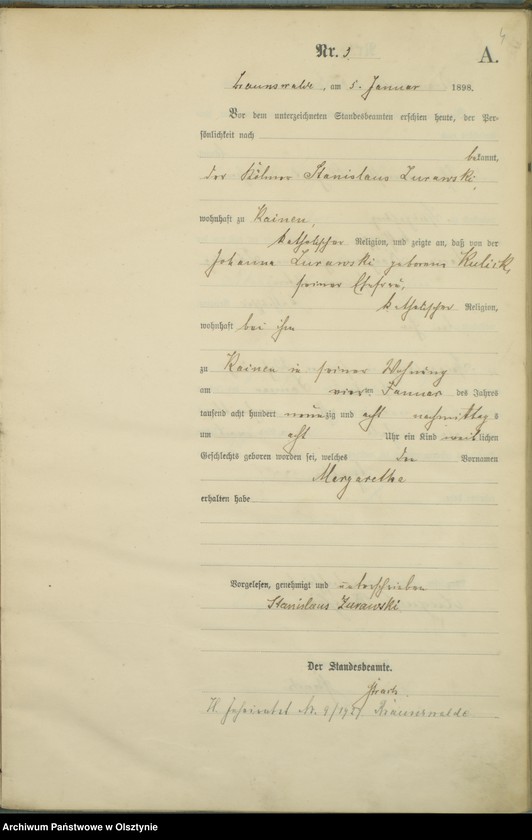 Nr. 3
A.
Braunswalde, am 5. Januar 1898.
Vor dem unterzeichneten Standesbeamten erschien heute, der Per-
sönlichkeit nach
bekannt,
der Kölmer Stanislaus Zurawski,
wohnhaft zu Kainen,
katholischer Religion, und zeigte an, daß von der
Johanna Zurawski geborene Kulick,
seiner Ehefrau,
katholischer Religion,
wohnhaft bei ihm
zu Kainen in seiner Wohnung
am vierten Januar des Jahrs
tausend acht hundert neunzig und acht nachmittags
um acht Uhr ein Kind weiblichen
Geschlechts geboren worden sei, welches den Vornamen
Margarethe
erhalten habe
Vorgelesen, genehmigt und unterschrieben
Stanislaus Zurawski
Der Standesbeamte.
H. Geheiratet Nr. Braunswalde
Archiwum Państwowe w Olsztynie